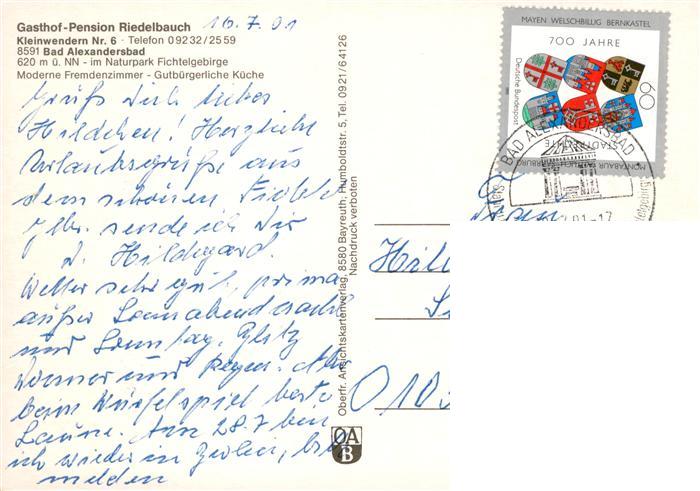 Gasthof-Pension Riedelbauch
Kleinwendern Nr. 6 · Telefon 0 92 32/25 59
8591 Bad Alexandersbad
620 m ü. NN - im Naturpark Fichtelgebirge
Moderne Fremdenzimmer - Gutbürgerliche Küche
16.7.91
Grüß Dich liebes
Hildchen! Herzliche
Urlaubsgrüße aus
dem schönen Fichtel
gbe. sende ich Dir
D. Hildegard.
Wetter sehr gut, prima
außer Sonnabend
und Sonntag. Blitz
Donner und Regen. Aber
beim Würfelspiel beste
Laune. Am 28.7 bin
ich wieder in Berlin, bis
melden
Oberfr. Ansichtskartenverlag, 8580 Bayreuth, Humboldtstr. 5, Tel. 0921/64126
Nachdruck verboten
OA
B
MAYEN WELSCHBILLIG BERNKASTEL
700 JAHRE
Deutsche Bundespost
60
STADTRECHTE
MONTABAUR SAARBURG
BAD ALEXANDERSBAD
Frau
Hil
O 10